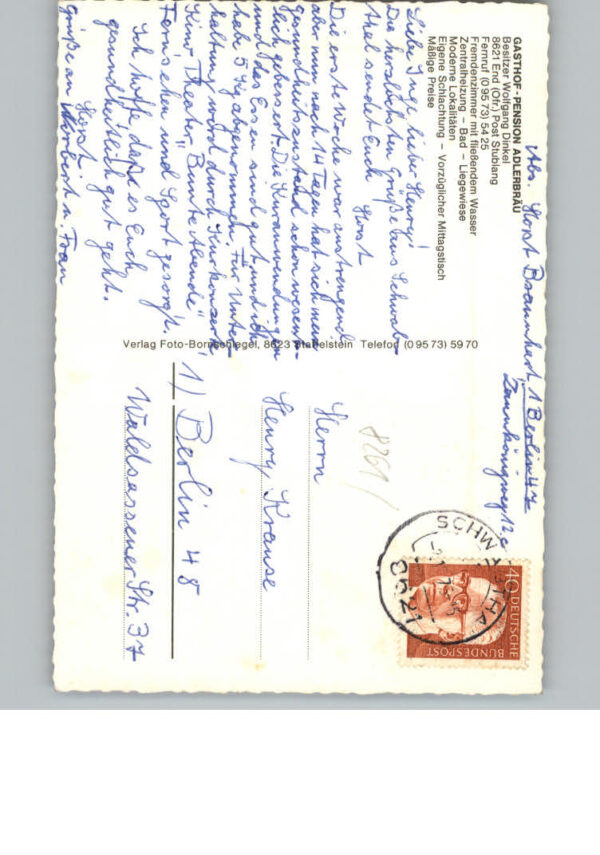 GASTHOF-PENSION ADLERBRÄU
Besitzer Wolfgang Dinkel
8621 End (Ofr.) Post Stublang
Fernruf (0 95 73) 54 25
Fremdenzimmer mit fließendem Wasser
Zentralheizung – Bad – Liegewiese
Moderne Lokalitäten
Eigene Schlachtung – Vorzüglicher Mittagstisch
Mäßige Preise
Abs. Horst 1 Berlin 47
Liebe Inge, lieber Henry!
Die herzlichsten Grüße aus Schwab-
thal sendet Euch Horst
Die erste Woche war anstrengend
aber nun nach 14 Tagen hat sich mein
Gesundheitszustand schon wesent-
lich gebessert. Die Kuranwendungen
und das Essen sind gut und ich
habe 5 kg abgenommen. Für Unter-
haltung wird durch Kurkonzerte
Kino, Theater, "Bunte Abende",
Fernsehen und Sport gesorgt.
Ich hoffe dass es Euch
gesundheitlich gut geht.
Horst
Grüße an Norbert u. Frau
Verlag Foto-Bornschlegel, 8623 Staffelstein Telefon (0 95 73) 59 70
8261
Herrn
Henry Krause
1) Berlin 48
Waldsassener Str. 37
40
DEUTSCHE
BUNDESPOST
8621